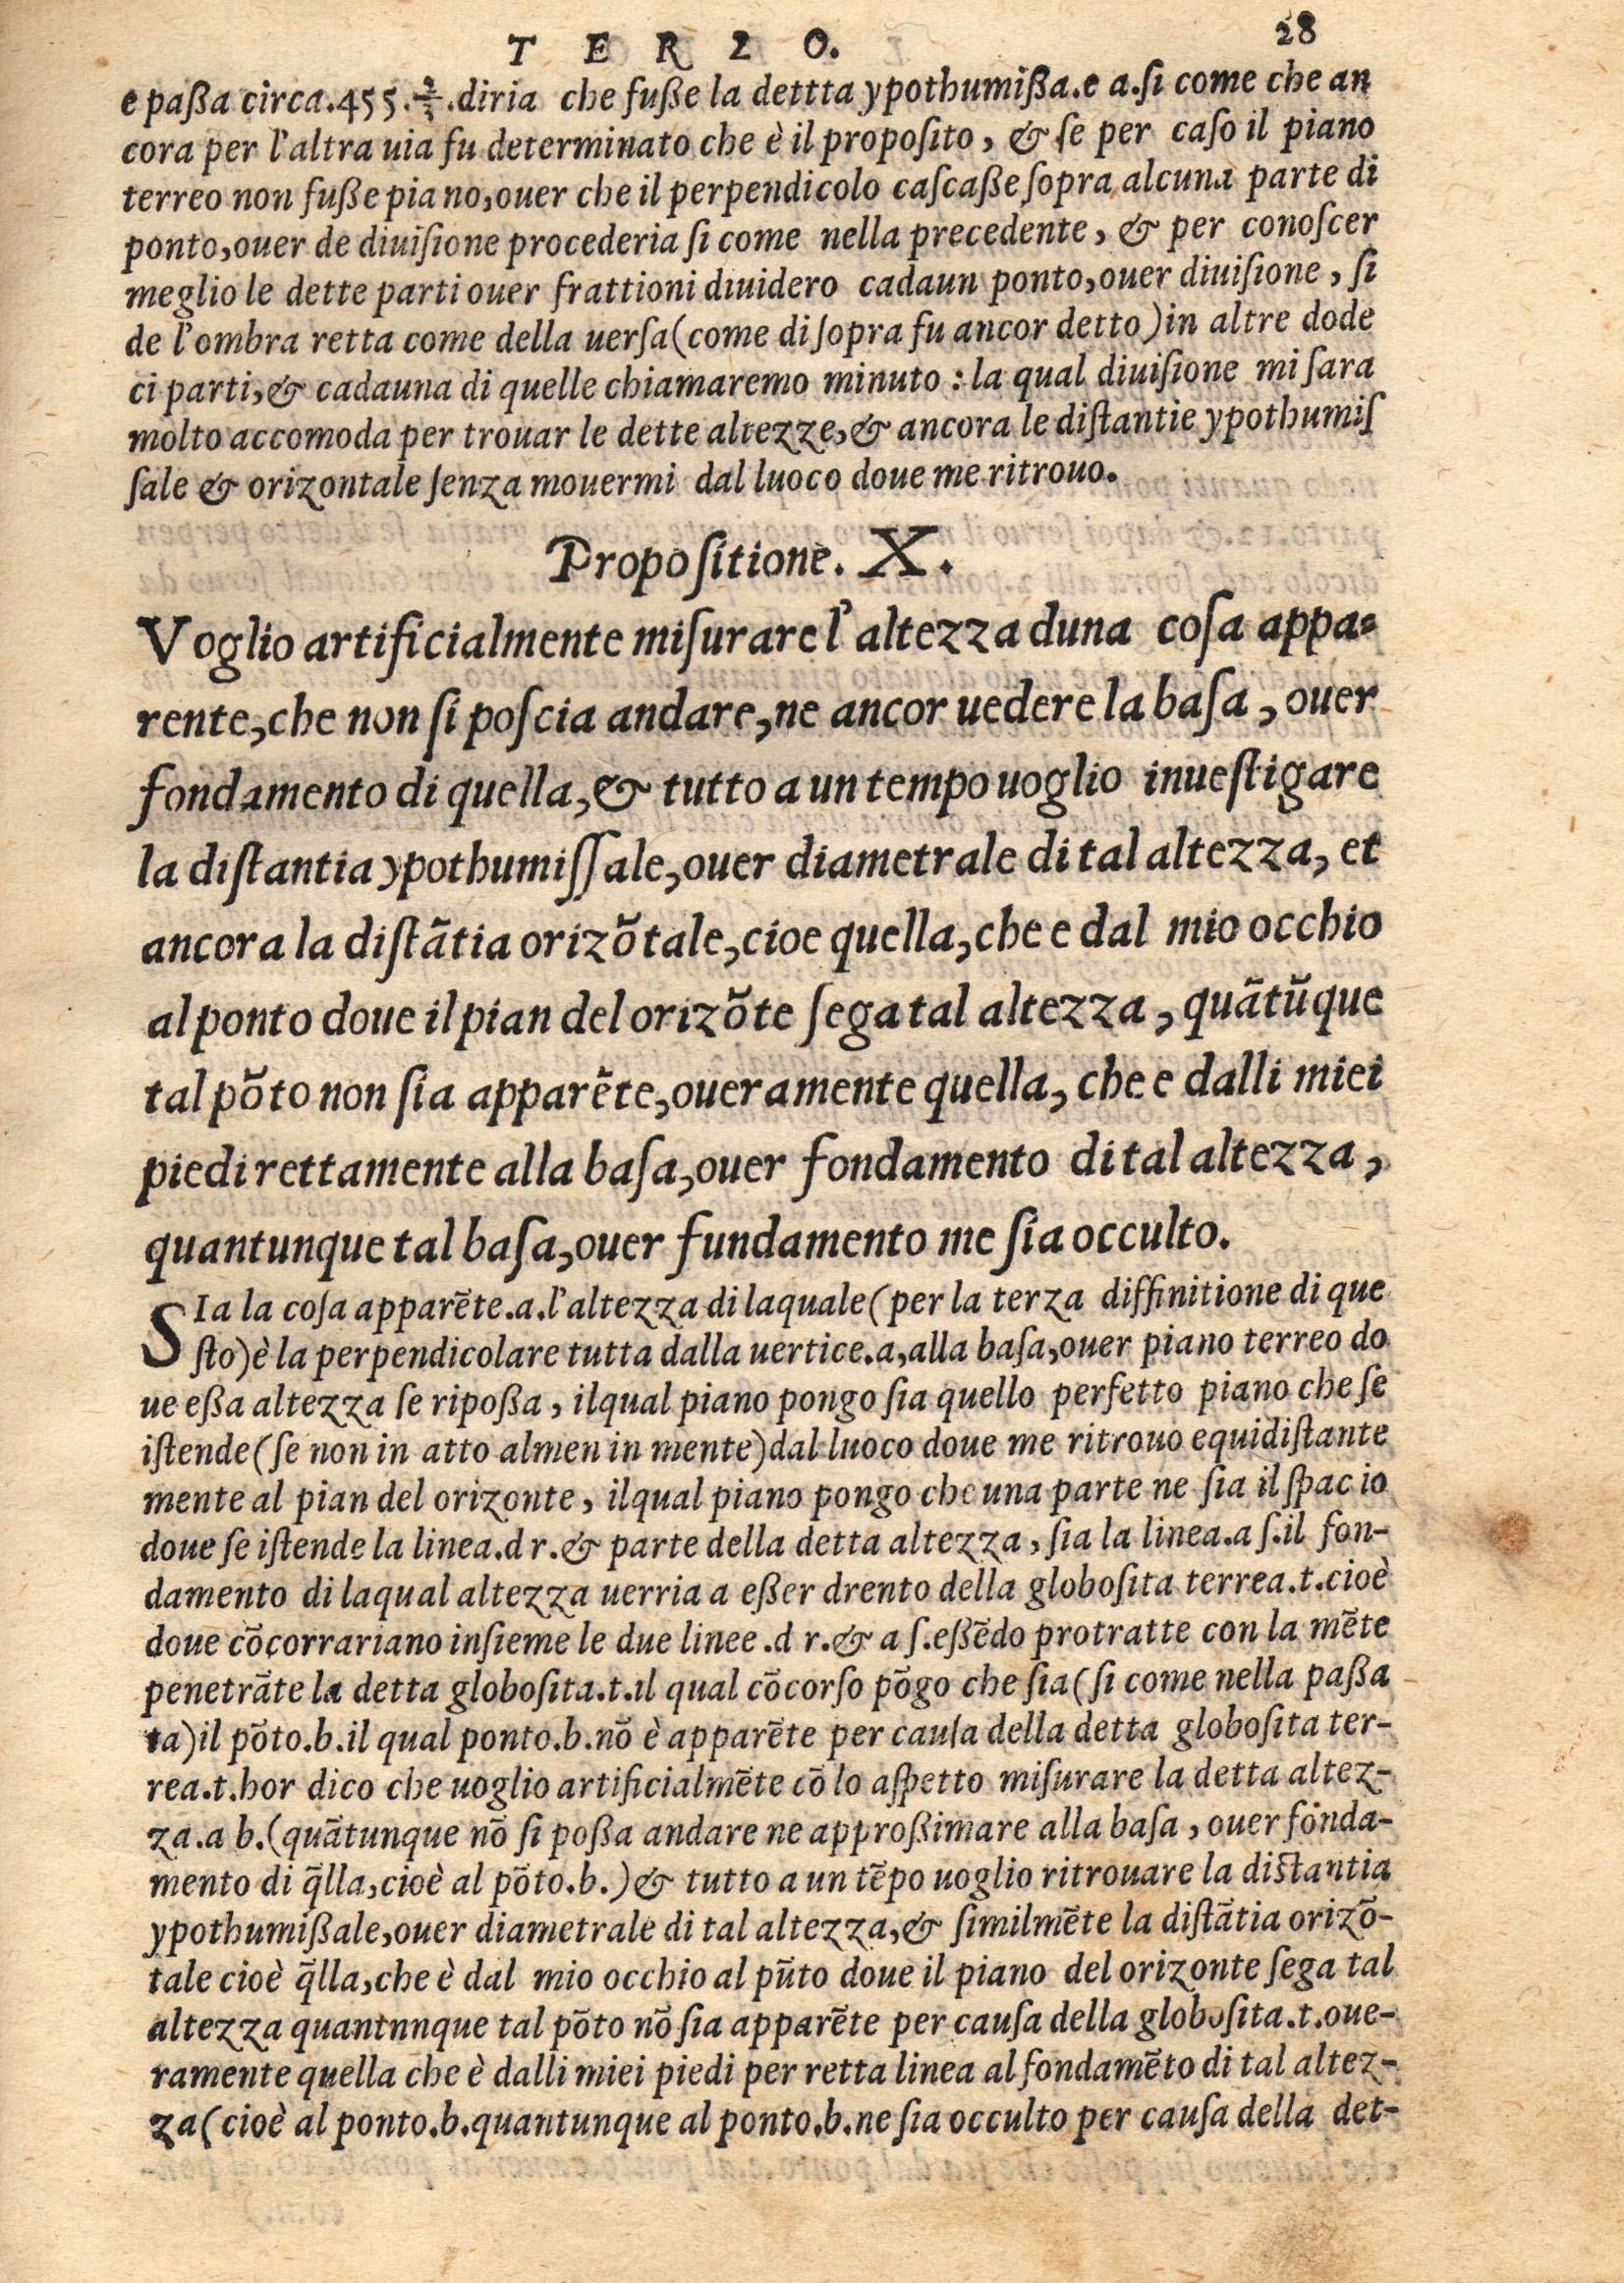 TERZO. 28
e paßa circa.455.⅔.diria che fuße la dettta ypothumißa.e a.ſi come che an
cora per l'altra uia fu determinato che è il propoſito, & ſe per caſo il piano
terreo non fuße piano,ouer che il perpendicolo caſcaße ſopra alcuna parte di
ponto,ouer de diuiſione procederia ſi come nella precedente, & per conoſcer
meglio le dette parti ouer frattioni diuidero cadaun ponto,ouer diuiſione, ſi
de l'ombra retta come della uerſa(come di ſopra fu ancor detto)in altre dode
ci parti,& cadauna di quelle chiamaremo minuto : la qual diuiſione mi ſara
molto accomoda per trouar le dette altezze,& ancora le diſtantie ypothumiſ
ſale & orizontale ſenza mouermi dal luoco doue me ritrouo.
Propoſitione. X.
Voglio artificialmente miſurare l'altezza duna coſa appa=
rente,che non ſi poſcia andare,ne ancor uedere la baſa, ouer
fondamento di quella,& tutto a un tempo uoglio inueſtigare
la diſtantia ypothumiſſale,ouer diametrale di tal altezza, et
ancora la diſtãtia orizõtale,cioe quella,che e dal mio occhio
al ponto doue il pian del orizõte ſega tal altezza, quãtũque
tal põto non ſia apparẽte,oueramente quella, che e dalli miei
piedi rettamente alla baſa,ouer fondamento di tal altezza,
quantunque tal baſa,ouer fundamento me ſia occulto.
SIa la coſa apparẽte.a.l'altezza di laquale(per la terza diffinitione di que
ſto)è la perpendicolare tutta dalla uertice.a,alla baſa,ouer piano terreo do
ue eßa altezza ſe ripoßa, ilqual piano pongo ſia quello perfetto piano che ſe
iſtende(ſe non in atto almen in mente)dal luoco doue me ritrouo equidiſtante
mente al pian del orizonte, ilqual piano pongo che una parte ne ſia il ſpacio
doue ſe iſtende la linea.d r.& parte della detta altezza, ſia la linea.a ſ.il fon-
damento di laqual altezza uerria a eßer drento della globoſita terrea.t.cioè
doue cõcorrariano inſieme le due linee.d r.& a ſ.eßẽdo protratte con la mẽte
penetrãte la detta globoſita.t.il qual cõcorſo põgo che ſia(ſi come nella paßa
ta)il põto.b.il qual ponto.b.nõ è apparẽte per cauſa della detta globoſita ter-
rea.t.hor dico che uoglio artificialmẽte cõ lo aſpetto miſurare la detta altez-
za.a b.(quãtunque nõ ſi poßa andare ne approßimare alla baſa, ouer fonda-
mento di q̃lla,cioè al põto.b.)& tutto a un tẽpo uoglio ritrouare la diſtantia
ypothumißale,ouer diametrale di tal altezza,& ſimilmẽte la diſtãtia orizõ-
tale cioè q̃lla,che è dal mio occhio al pũto doue il piano del orizonte ſega tal
altezza quantnnque tal põto nõ ſia apparẽte per cauſa della globoſita.t.oue-
ramente quella che è dalli miei piedi per retta linea al fondamẽto di tal altez-
za(cioè al ponto.b.quantunque al ponto.b.ne ſia occulto per cauſa della det-